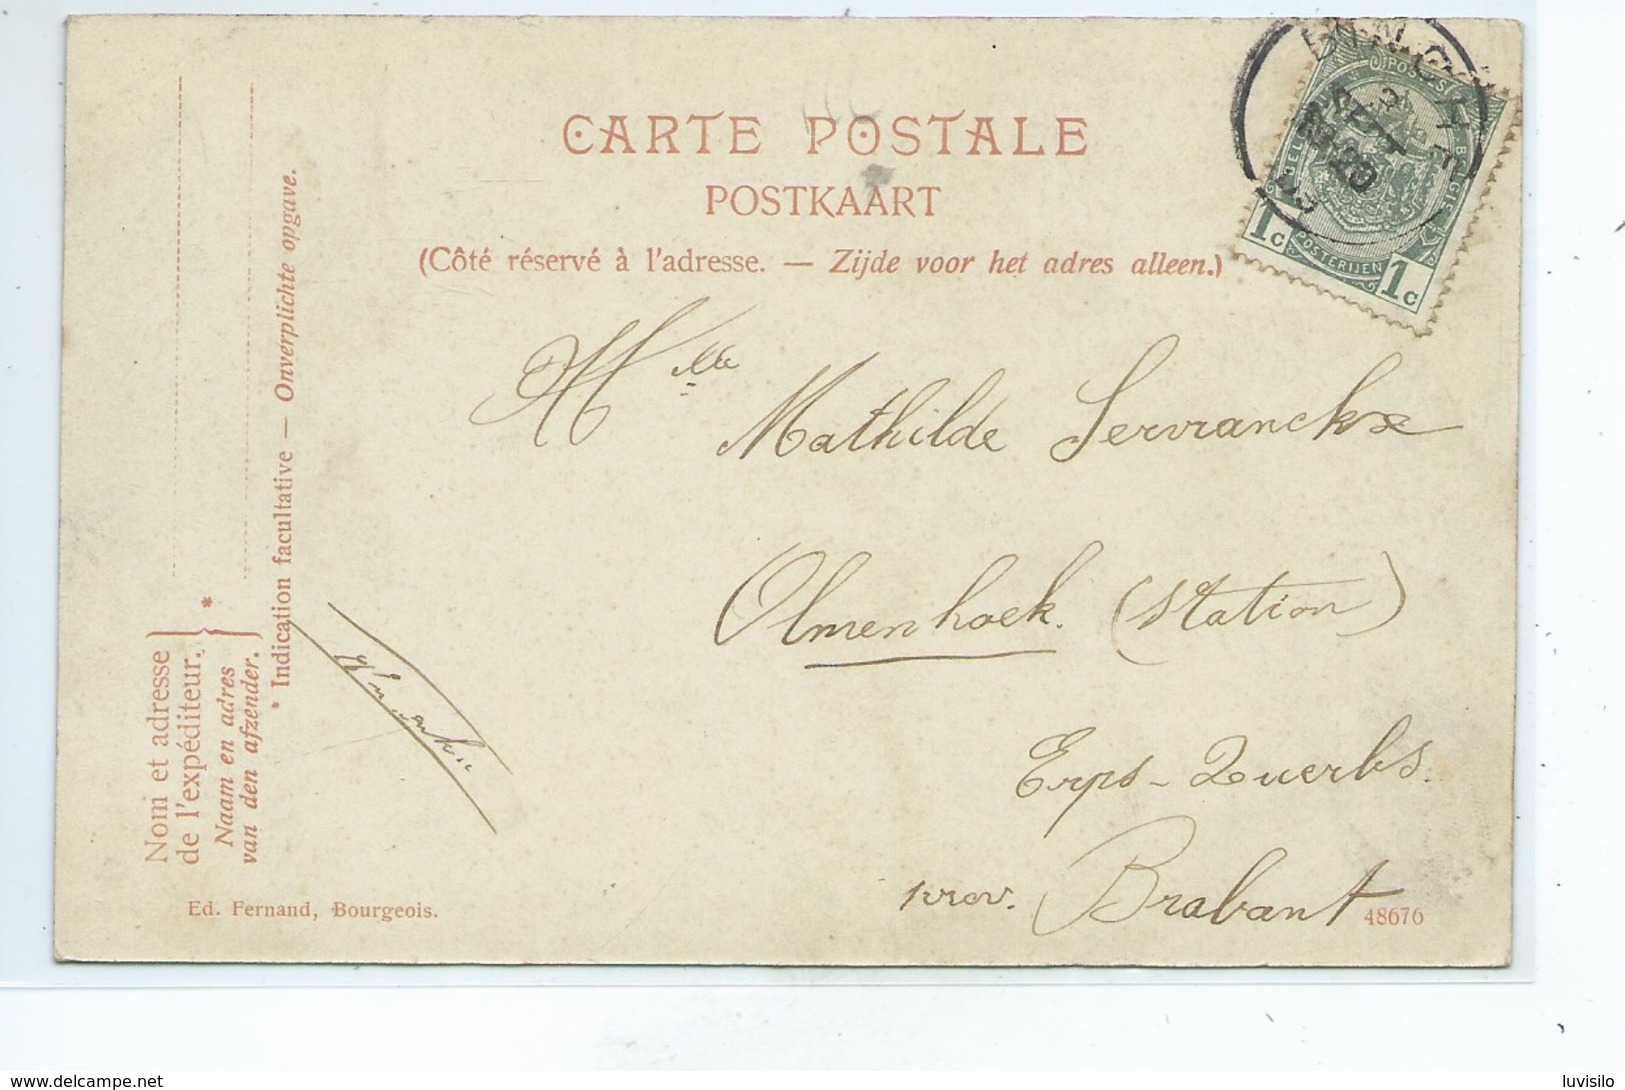 CARTE POSTALE
POSTKAART
(Côté réservé à l'adresse. — Zijde voor het adres alleen.)
POSTES
POSTERIJEN
1c 1c
Mlle Mathilde Servranckx
Olmenhoek. (Station)
Erps-Querbs.
prov. Brabant
Nom et adresse
de l'expéditeur.
Naam en adres
van den afzender.
*
* Indication facultative — Onverplichte opgave.
Ed. Fernand, Bourgeois.
48676
delcampe.net
luvisilo